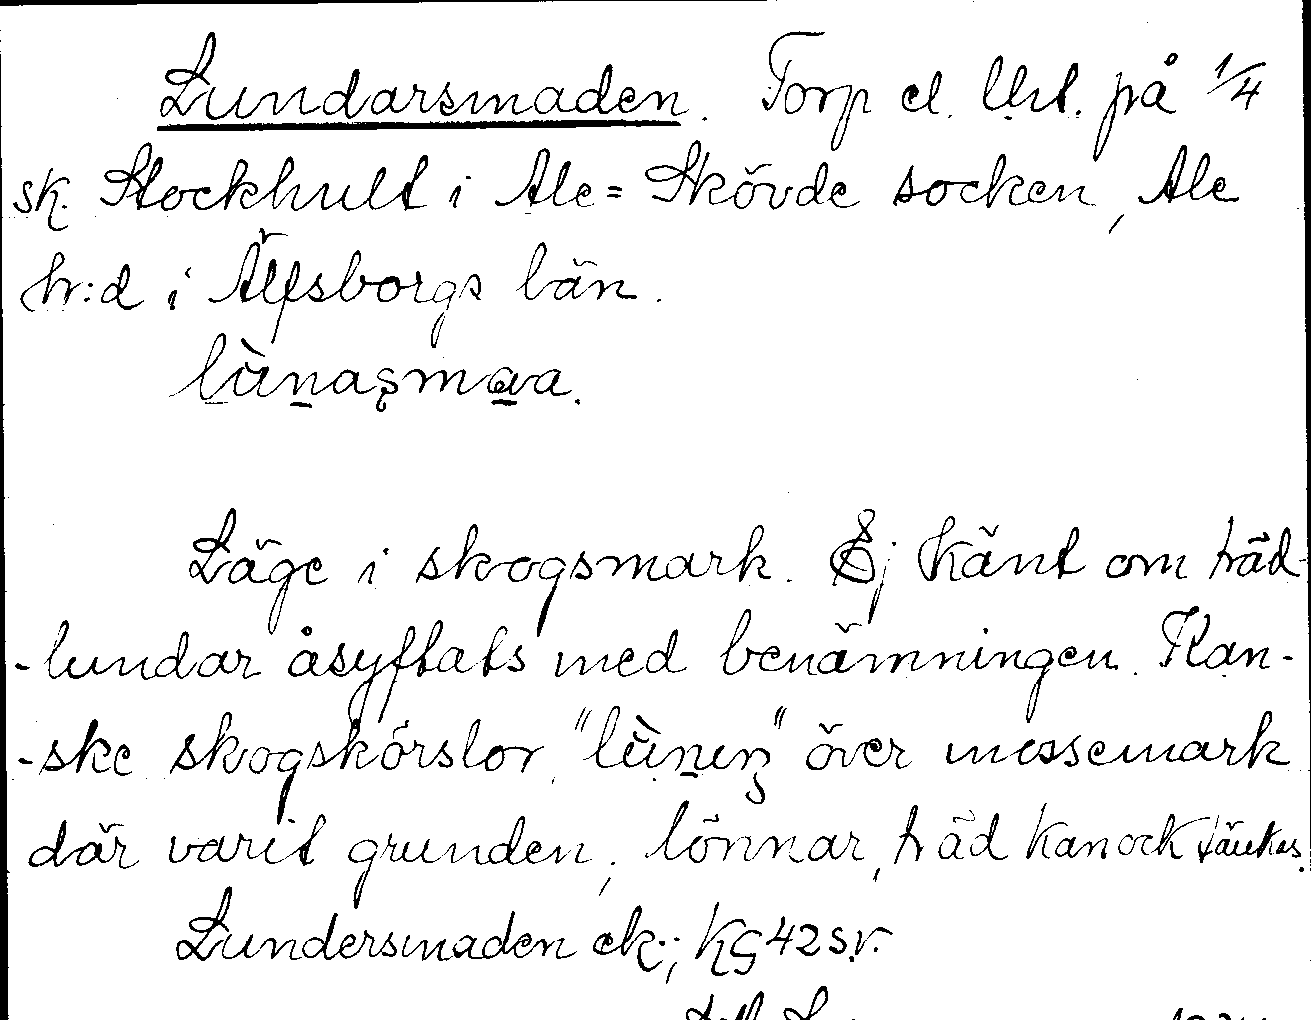 Lundarsmaden. Torp el. lht. på 1/4
sk. Stockhult i Ale=Skövde socken, Ale
hr:d i Älfsborgs län.
lùnaşmava.
Läge i skogsmark. Ej känt om träd-
-lundar åsyftats med benämningen. Kan-
-ske skogskörslor "lùneŋ" över mossemark
där varit grunden; lönnar, träd kan ock tänkas.
Lundersmaden ek.; KG 42 sv.